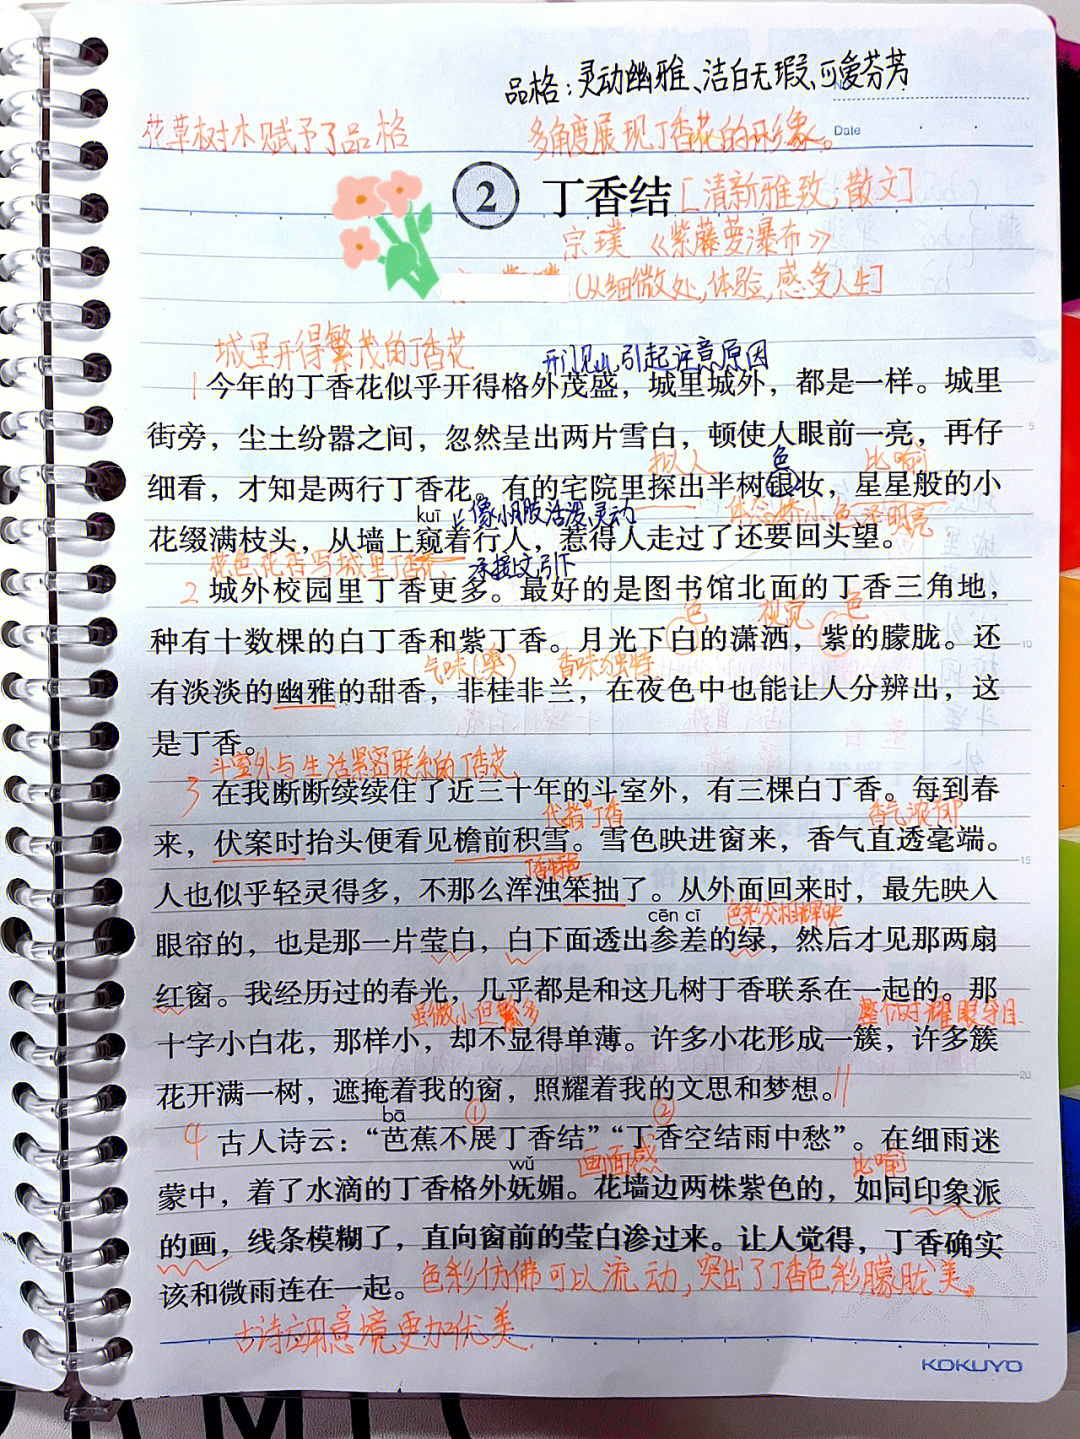 品格:灵动幽雅、洁白无瑕、可爱芬芳
花草树木赋予了品格
多角度展现丁香花的形象。
Date
② 丁香结 [清新雅致,散文]
宗璞 《紫藤萝瀑布》
(从细微处,体验,感受人生]
城里开得繁茂的丁香花
开门见山,引起注意原因
1 今年的丁香花似乎开得格外茂盛，城里城外，都是一样。城里
街旁，尘土纷嚣之间，忽然呈出两片雪白，顿使人眼前一亮，再仔
拟人 色 比喻
细看，才知是两行丁香花。有的宅院里探出半树银妆，星星般的小
kuī 像小朋友活泼,灵动 体态娇小,色泽明亮
花缀满枝头，从墙上窥着行人，惹得人走过了还要回头望。
花色,花香写城里丁香花 承接上文,引下
2 城外校园里丁香更多。最好的是图书馆北面的丁香三角地，
色 视觉 色
种有十数棵的白丁香和紫丁香。月光下白的潇洒，紫的朦胧。还
气味(嗅) 香味独特
有淡淡的幽雅的甜香，非桂非兰，在夜色中也能让人分辨出，这
是丁香。
斗室外与生活紧密联系的丁香花
3 在我断断续续住了近三十年的斗室外，有三棵白丁香。每到春
代指"丁香 香气浓郁
来，伏案时抬头便看见檐前积雪。雪色映进窗来，香气直透毫端。
丁香特色
人也似乎轻灵得多，不那么浑浊笨拙了。从外面回来时，最先映入
cēn cī 色彩交相辉映
眼帘的，也是那一片莹白，白下面透出参差的绿，然后才见那两扇
红窗。我经历过的春光，几乎都是和这几树丁香联系在一起的。那
虽微小但繁多 整个树耀眼夺目
十字小白花，那样小，却不显得单薄。许多小花形成一簇，许多簇
花开满一树，遮掩着我的窗，照耀着我的文思和梦想。
bā ① ②
4 古人诗云：“芭蕉不展丁香结”“丁香空结雨中愁”。在细雨迷
wǔ 画面感 比喻
蒙中，着了水滴的丁香格外妩媚。花墙边两株紫色的，如同印象派
的画，线条模糊了，直向窗前的莹白渗过来。让人觉得，丁香确实
该和微雨连在一起。色彩仿佛可以流动,突出了丁香色彩朦胧美。
古诗应用意境更加优美.
KOKUYO
5
10
15
20